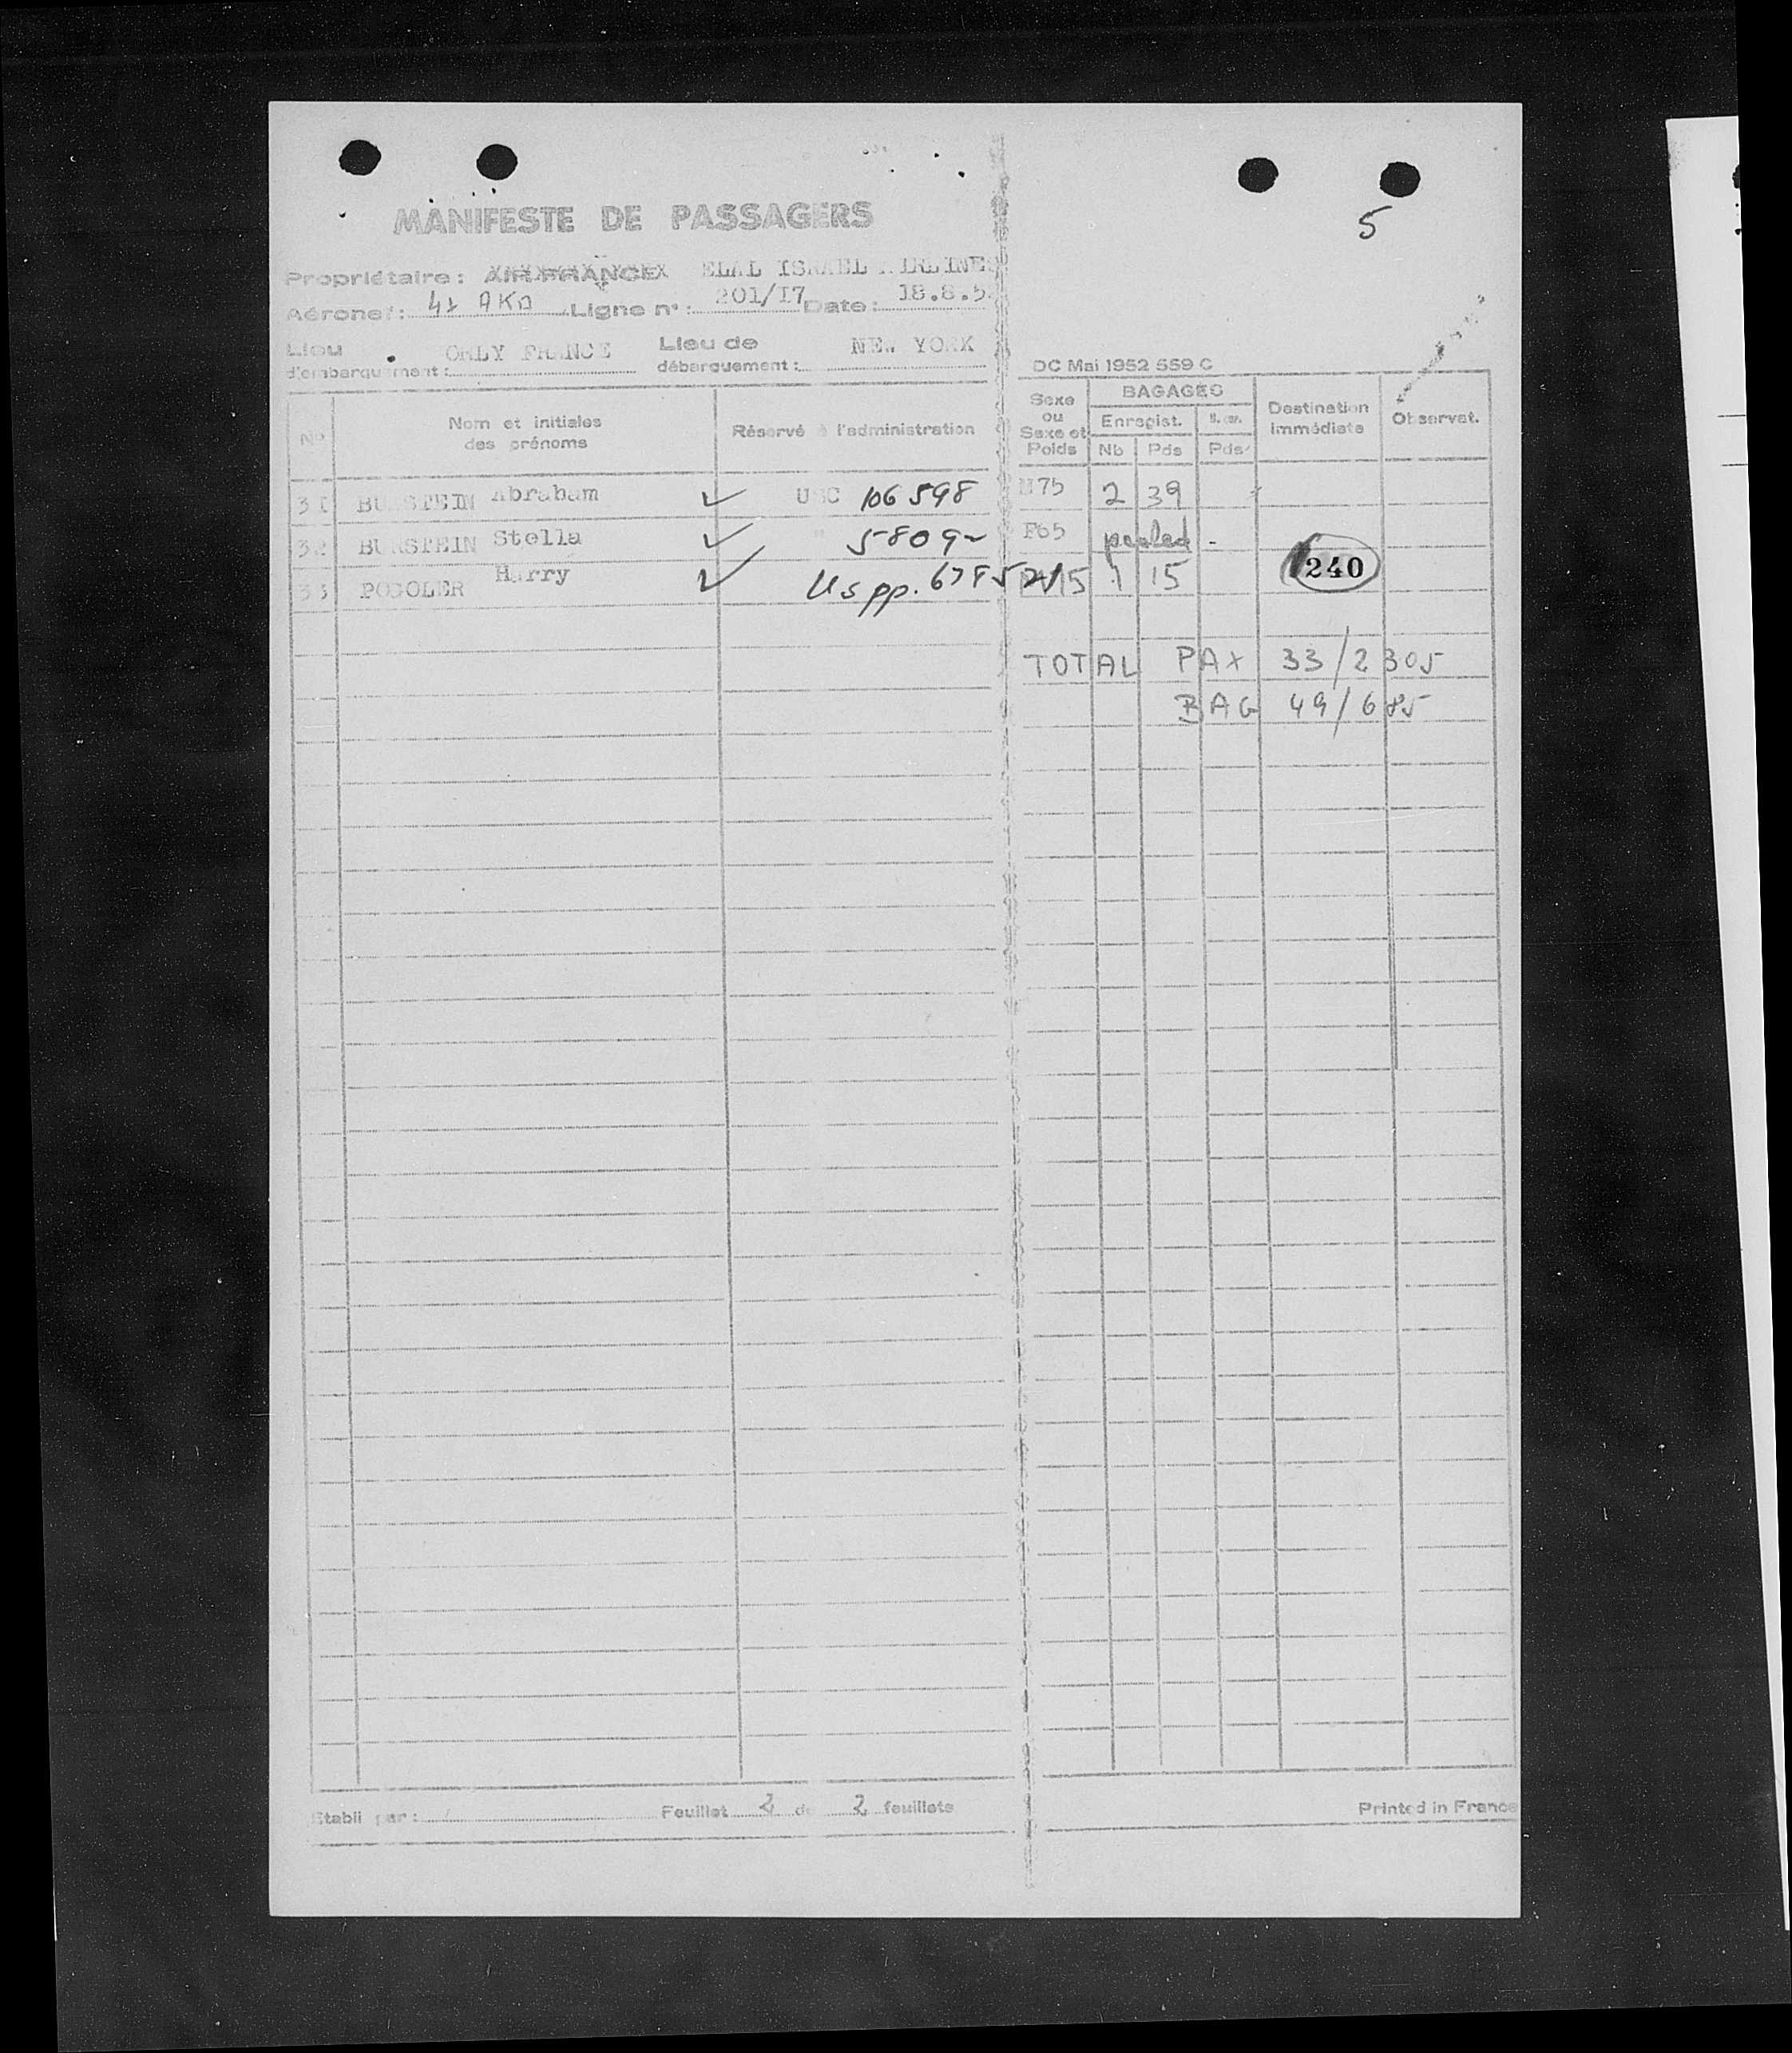 5
MANIFESTE DE PASSAGERS
Propriétaire: AIR FRANCE ELAL ISRAEL AIRLINES
Aéronef: 4X AKD Ligne n°: 201/I7 Date: 18.8.5
Lieu d'embarquement: ORLY FRANCE Lieu de débarquement: NEW YORK
DC Mai 1952 559 C
N° Nom et initiales des prénoms Réservé à l'administration Sexe ou Sexe et Poids BAGAGES Enregist. Nb Pds Pds Destination immédiate Observat.
31 BURSTEIN Abraham ✓ USC 106598 M75 2 39
32 BURSTEIN Stella ✓ " F65 pooled -
33 Harry ✓ US pp. 1 15
240
TOTAL PAX 33/2305
BAG 49/685
Etabli par: Feuillet 2 de 2 feuillets
Printed in France